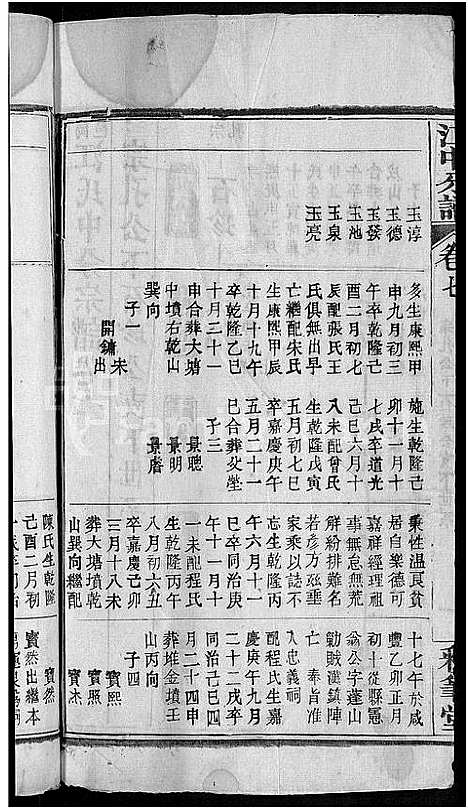 卷七
子
玉淳
玉德
玉發
玉池
玉泉
玉亮
生康熙甲
申九月初三
午卒乾隆己
酉二月初七
辰配張氏王
氏俱無出早
亡繼配朱氏
生康熙甲辰
十月十九午
卒乾隆乙巳
十月二十一
申合葬大塘
中墳右乾山
巽向
子一
開鏞
出
朱
施生乾隆己
卯十一月十
七戌卒道光
己巳六月十
八未配曾氏
生乾隆戊寅
五月初七巳
卒嘉慶庚午
五月二十一
巳合葬
子三
景聰
景明
景睿
秉性溫良貧
居自樂德可
嘉祥經理祖
事無怠無荒
解紛排難名
若彥方
家乘以誌不
忘生乾隆丙
午六月十一
巳卒同治庚
午十一月十
一未配程氏
生乾隆丙午
八月初六丑
卒嘉慶己卯
三月十八未
葬大塘墳乾
山巽向繼配
陳氏生乾隆
己酉二月初
十七午於咸
豐乙卯正月
初十從縣
翁公字蓬山
勦賊漢鎮陣
亡
奉旨准
入忠義祠
配程氏生嘉
慶庚申九月
二十二戌卒
同治己巳四
月二十四申
葬堆金墳壬
山丙向
子四
寶熙
寶照
寶杰
寶然
寶然出繼本